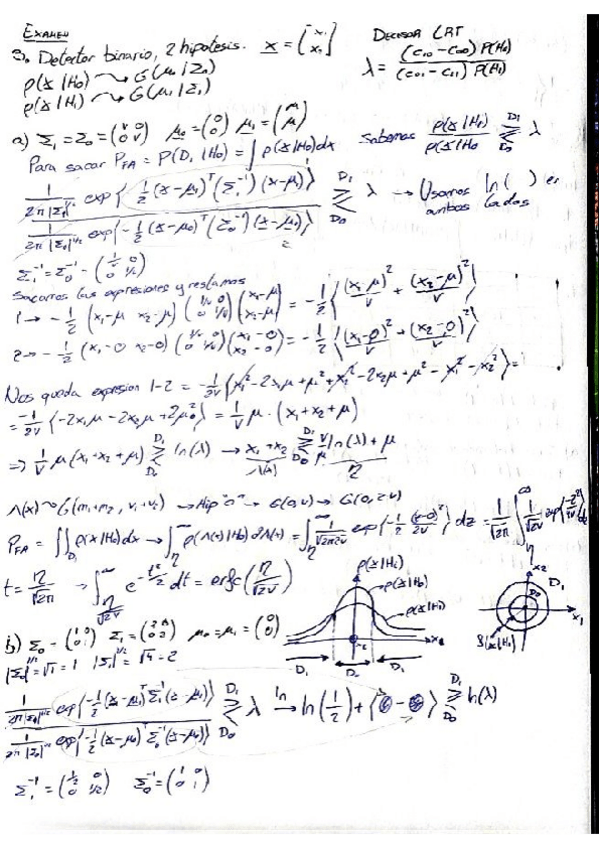 EXAMEN
3. Detector binario, 2 hipotesis. x = [x₁ x₂] DECISOR LRT
p(x|H₀) → G(μ₀|Σ₀) λ = (C₁₀ - C₀₀) P(H₀) / (C₀₁ - C₁₁) P(H₁)
p(x|H₁) → G(μ₁|Σ₁)
a) Σ₁ = Σ₀ = (v 0 / 0 v) μ₀ = (0 / 0) μ₁ = (μ / μ) Sabemos p(x|H₁) / p(x|H₀) ≷ λ
Para sacar P_FA = P(D₁|H₀) = ∫ p(x|H₀)dx
1/(2π|Σ₁|^½) exp{ 1/2 (x-μ₁)ᵀ(Σ₁⁻¹)(x-μ₁)} D₁ ≷ D₀ λ → Usamos ln( ) en ambos lados
1/(2π|Σ₀|^½) exp{-1/2 (x-μ₀)ᵀ(Σ₀⁻¹)(x-μ₀)}
Σ₁⁻¹ = Σ₀⁻¹ - (1/v 0 / 0 1/v)
Sacamos las expresiones y restamos
1 → -1/2 (x₁-μ x₂-μ) (1/v 0 / 0 1/v) (x₁-μ / x₂-μ) = -1/2 {(x₁-μ)²/v + (x₂-μ)²/v}
2 → -1/2 (x₁-0 x₂-0) (1/v 0 / 0 1/v) (x₁-0 / x₂-0) = -1/2 {(x₁-0)²/v + (x₂-0)²/v}
Nos queda expresion 1-2 = -1/2v {x₁² - 2x₁μ + μ² + x₂² - 2x₂μ + μ² - x₁² - x₂²} =
= -1/2v {-2x₁μ - 2x₂μ + 2μ²} = 1/v μ · (x₁ + x₂ + μ)
⇒ 1/v μ(x₁+x₂+μ) D₁ ≷ D₀ ln(λ) → x₁ + x₂ D₁ ≷ D₀ v/μ ln(λ) + μ
Λ(x) η
Λ(x) ~ G(m₁+m₂, v₁+v₂) → Hip "0" → G(0,v) → G(0,2v)
P_FA = ∬_D₁ p(x|H₀)dx → ∫_η^∞ p(Λ(x)|H₀) dΛ(x) = ∫_η^∞ 1/√(2π2v) exp{-1/2 (z-0)²/(2v)} dz = 1/√(2π) ∫_η^∞ 1/√(2v)
t = η/√(2π) → ∫_{η/√(2v)}^∞ e^{-t²/2} dt = erfc(η/√(2v))
p(x|H₁)
p(x|H₀)
p(x|H₁)
D₁ D₀ D₁
x₂
D₁
D₀
x₁
b) Σ₀ - (1 0 / 0 1) Σ₁ = (2 0 / 0 2) μ₀ = μ₁ = (0 / 0)
|Σ₀|^½ = √1 = 1 |Σ₁|^½ = √4 = 2
1/(2π|Σ₁|^½) exp{-1/2 (x-μ₁)ᵀ Σ₁⁻¹ (x-μ₁)} D₁ ≷ D₀ λ ln → ln(1/2) + { - } D₁ ≷ D₀ ln(λ)
1/(2π|Σ₀|^½) exp{-1/2 (x-μ₀)ᵀ Σ₀⁻¹ (x-μ₀)}
Σ₁⁻¹ = (1/2 0 / 0 1/2) Σ₀⁻¹ = (1 0 / 0 1)